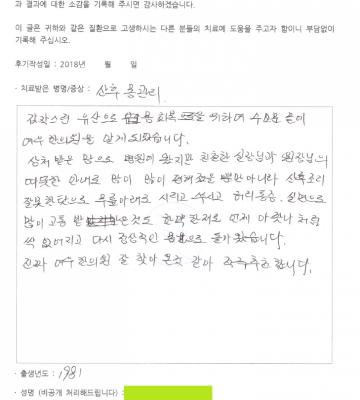 과 결과에 대한 소감을 기록해 주시면 감사하겠습니다.
이 글은 귀하와 같은 질환으로 고생하시는 다른 분들의 치료에 도움을 주고자 함이니 부담없이
기록해 주십시오.
후기작성일 : 2018년 월 일
· 치료받은 병명/증상 : 산후 몸관리.
갑작스런 유산으로 몸 회복을 위하여 수소문 끝에
여우한의원을 알게 되었습니다.
상처 받은 맘으로 병원에 왔지만 친절한 실장님과 원장님의
따뜻한 안내로 맘이 많이 편해졌을 뿐만아니라 산후조리
잘못한탓으로 무릎아래로 시리고 쑤시고 허리통증, 실면으로
많이 고통 받은것도 한약 한재로 언제 아팠냐 처럼
싹 없어지고 다시 정상적인 몸으로 돌아왔습니다.
진짜 여우한의원 잘 찾아 온것 같아 적극추천 합니다.
· 출생년도 : 1981
· 성명 (비공개 처리해드립니다) :